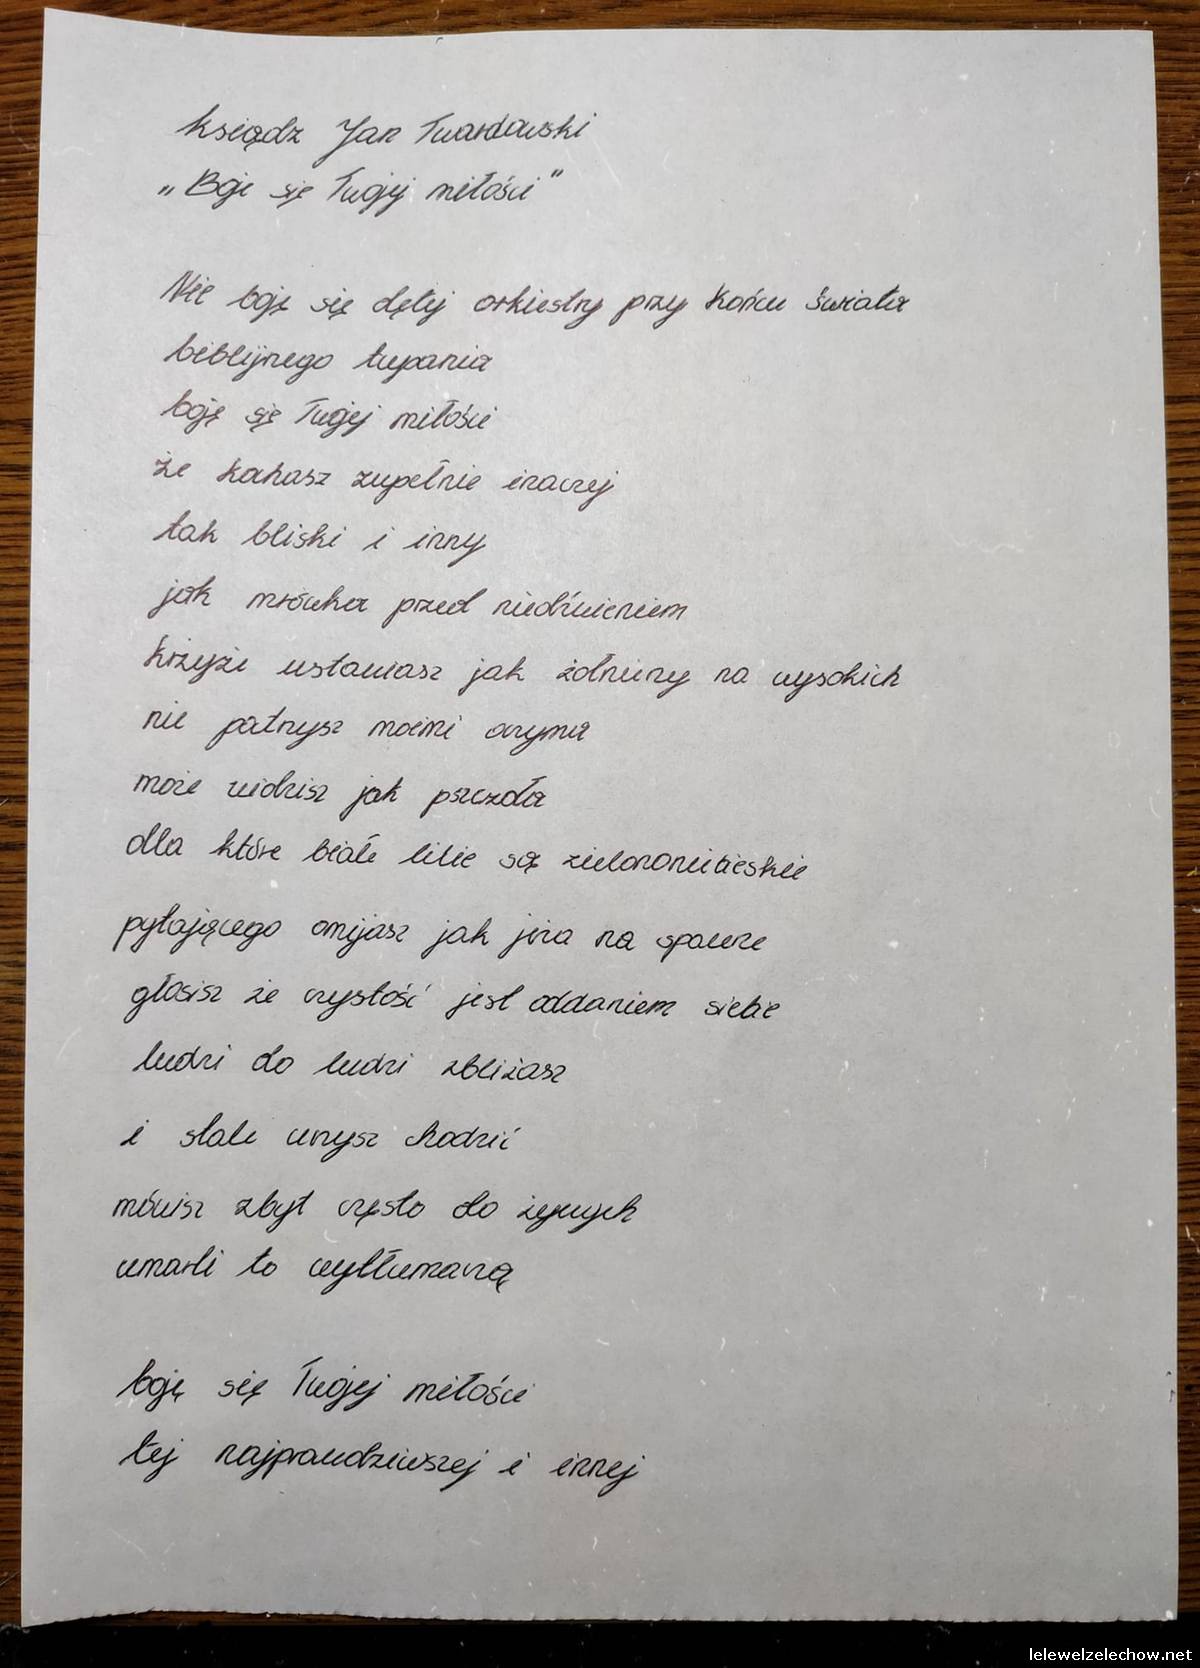 ksiądz Jan Twardowski
„Boję się Twojej miłości"
Nie boję się dętej orkiestry przy końcu świata
biblijnego tupania
boję się Twojej miłości
że kochasz zupełnie inaczej
tak bliski i inny
jak mrówka przed niedźwiedziem
krzyże ustawiasz jak żołnierzy na wysokich
nie patrzysz moimi oczyma
może widzisz jak pszczoła
dla które białe lilie są zielononiebieskie
pytającego omijasz jak jeża na spacerze
głosisz że czystość jest oddaniem siebie
ludzi do ludzi zbliżasz
i stale uczysz chodzić
mówisz zbyt często do żywych
umarli to wytłumaczą
boję się Twojej miłości
tej najprawdziwszej i innej
lelewelzelechow.net